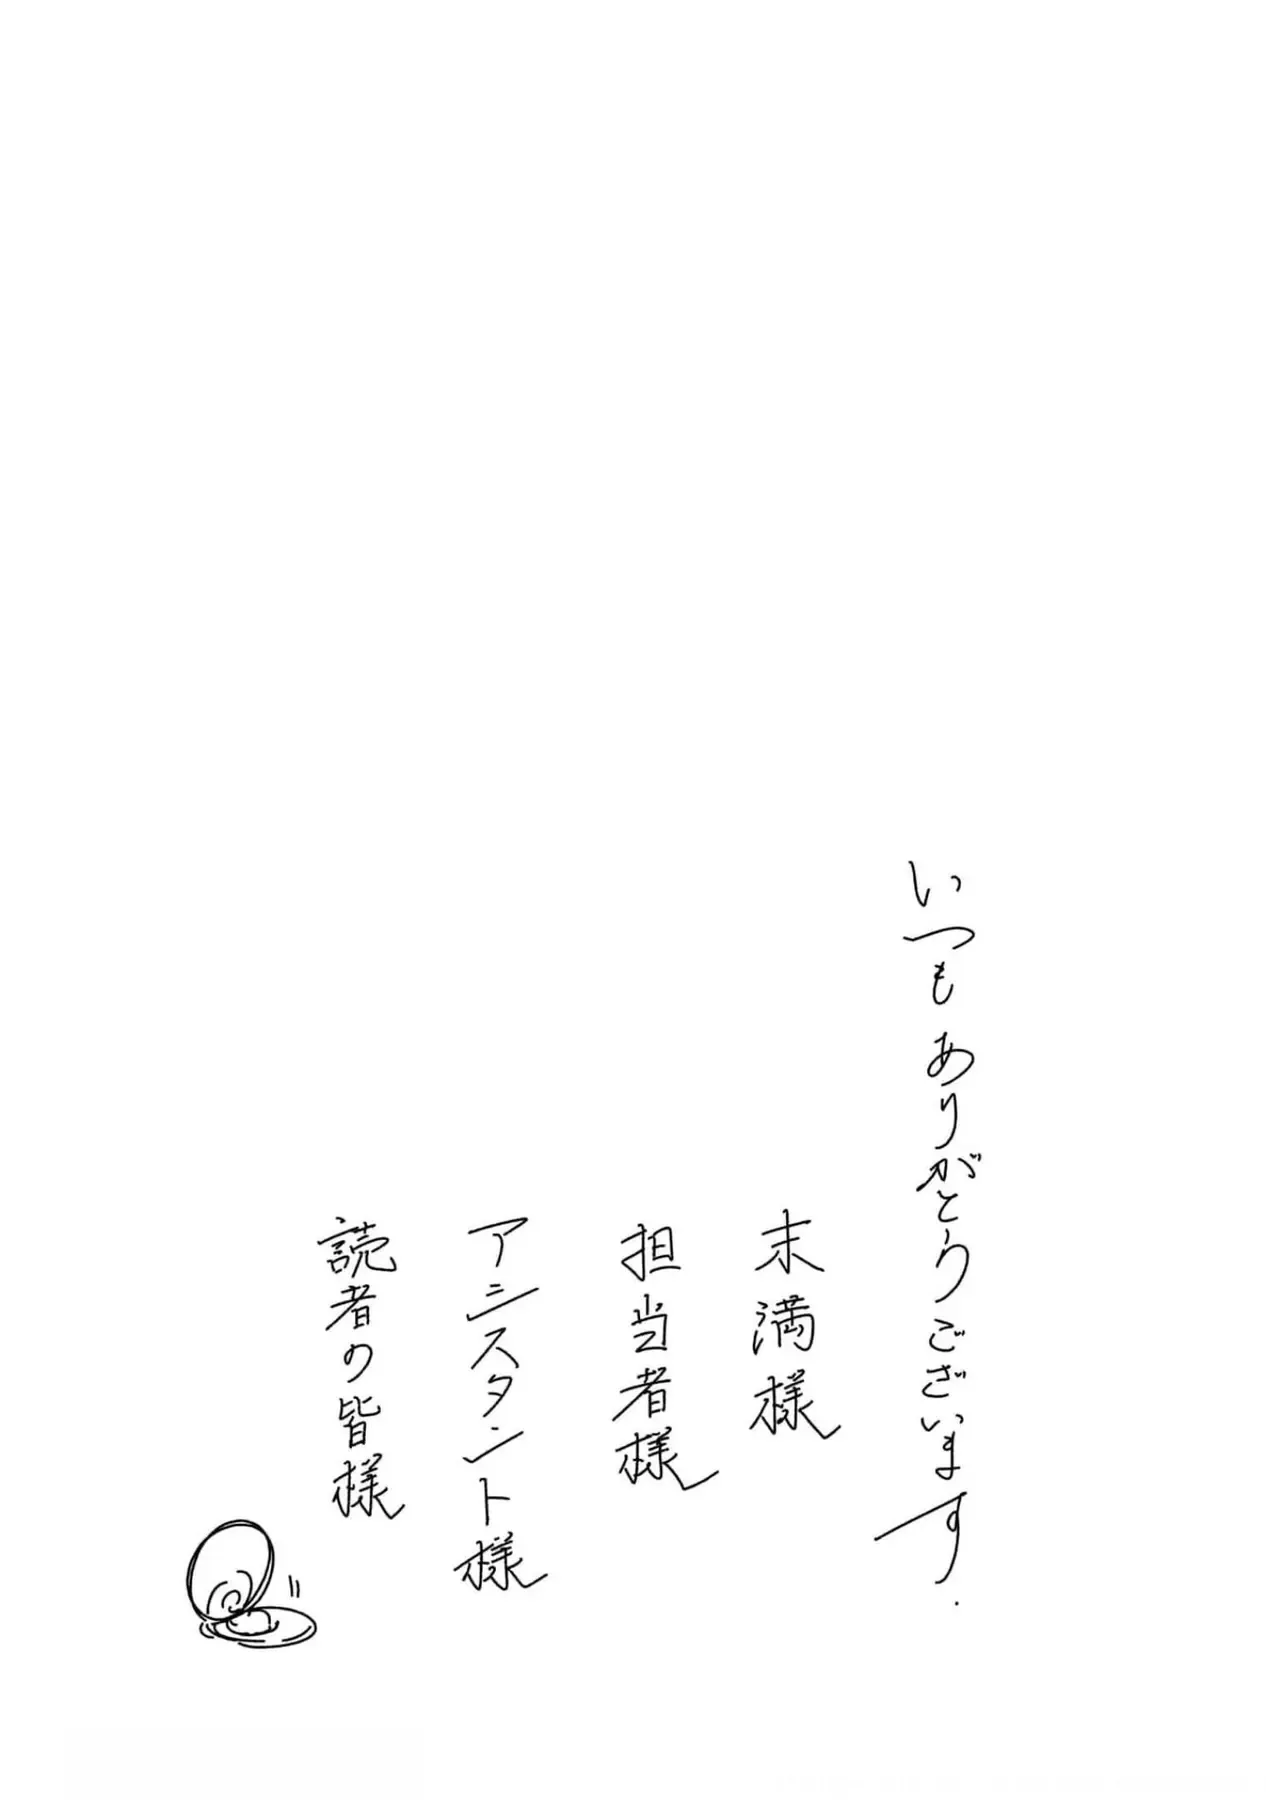 いつもありがとうございます.
末満様
担当者様
アシスタント様
読者の皆様